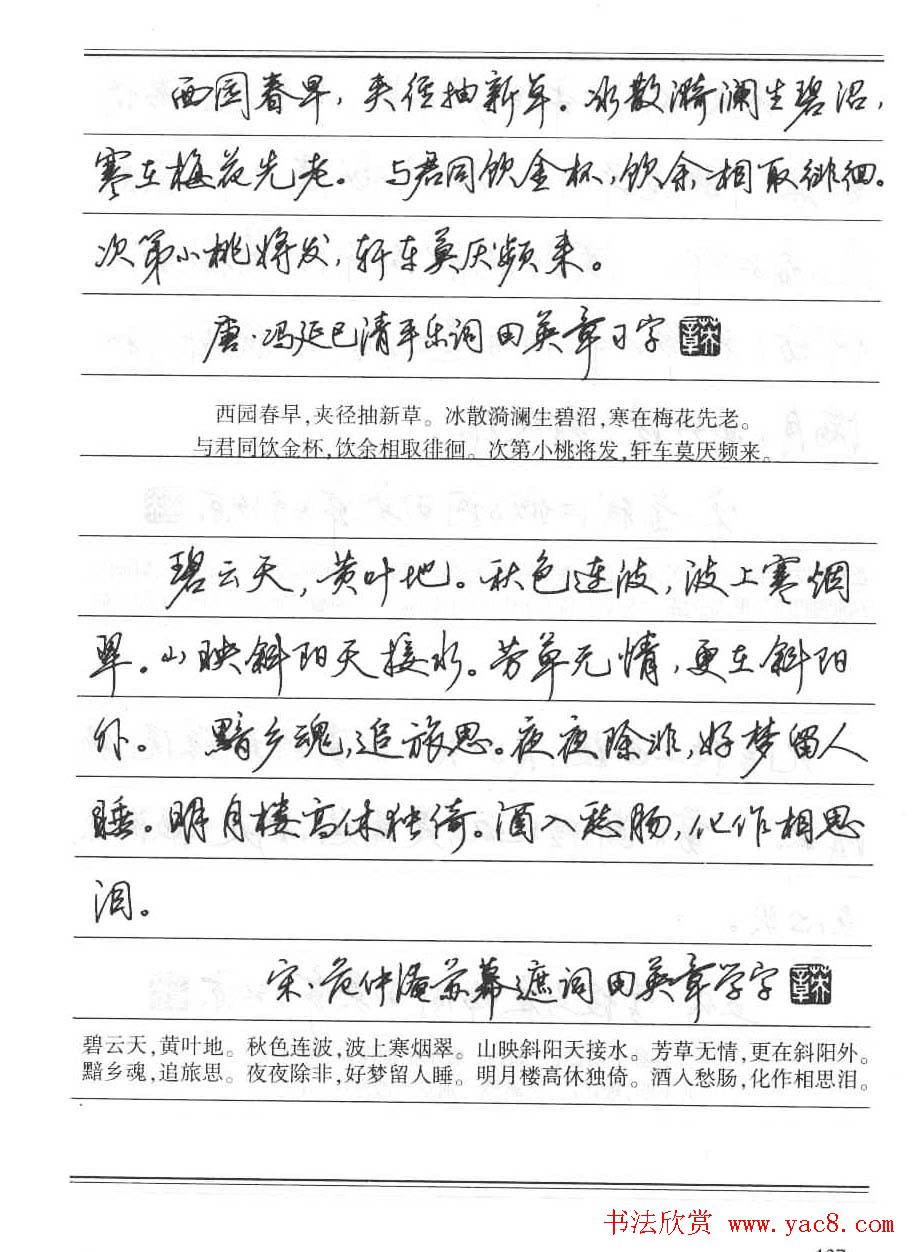 西园春早，夹径抽新草。冰散漪澜生碧沼，
寒在梅花先老。与君同饮金杯，饮余相取徘徊。
次第小桃将发，轩车莫厌频来。
唐·冯延巳清平乐词 田英章习字
西园春早，夹径抽新草。冰散漪澜生碧沼，寒在梅花先老。
与君同饮金杯，饮余相取徘徊。次第小桃将发，轩车莫厌频来。
碧云天，黄叶地。秋色连波，波上寒烟
翠。山映斜阳天接水。芳草无情，更在斜阳
外。 黯乡魂，追旅思。夜夜除非，好梦留人
睡。明月楼高休独倚。酒入愁肠，化作相思
泪。
宋·范仲淹苏幕遮词 田英章学字
碧云天，黄叶地。秋色连波，波上寒烟翠。山映斜阳天接水。芳草无情，更在斜阳外。
黯乡魂，追旅思。夜夜除非，好梦留人睡。明月楼高休独倚。酒入愁肠，化作相思泪。
书法欣赏 www.yac8.com